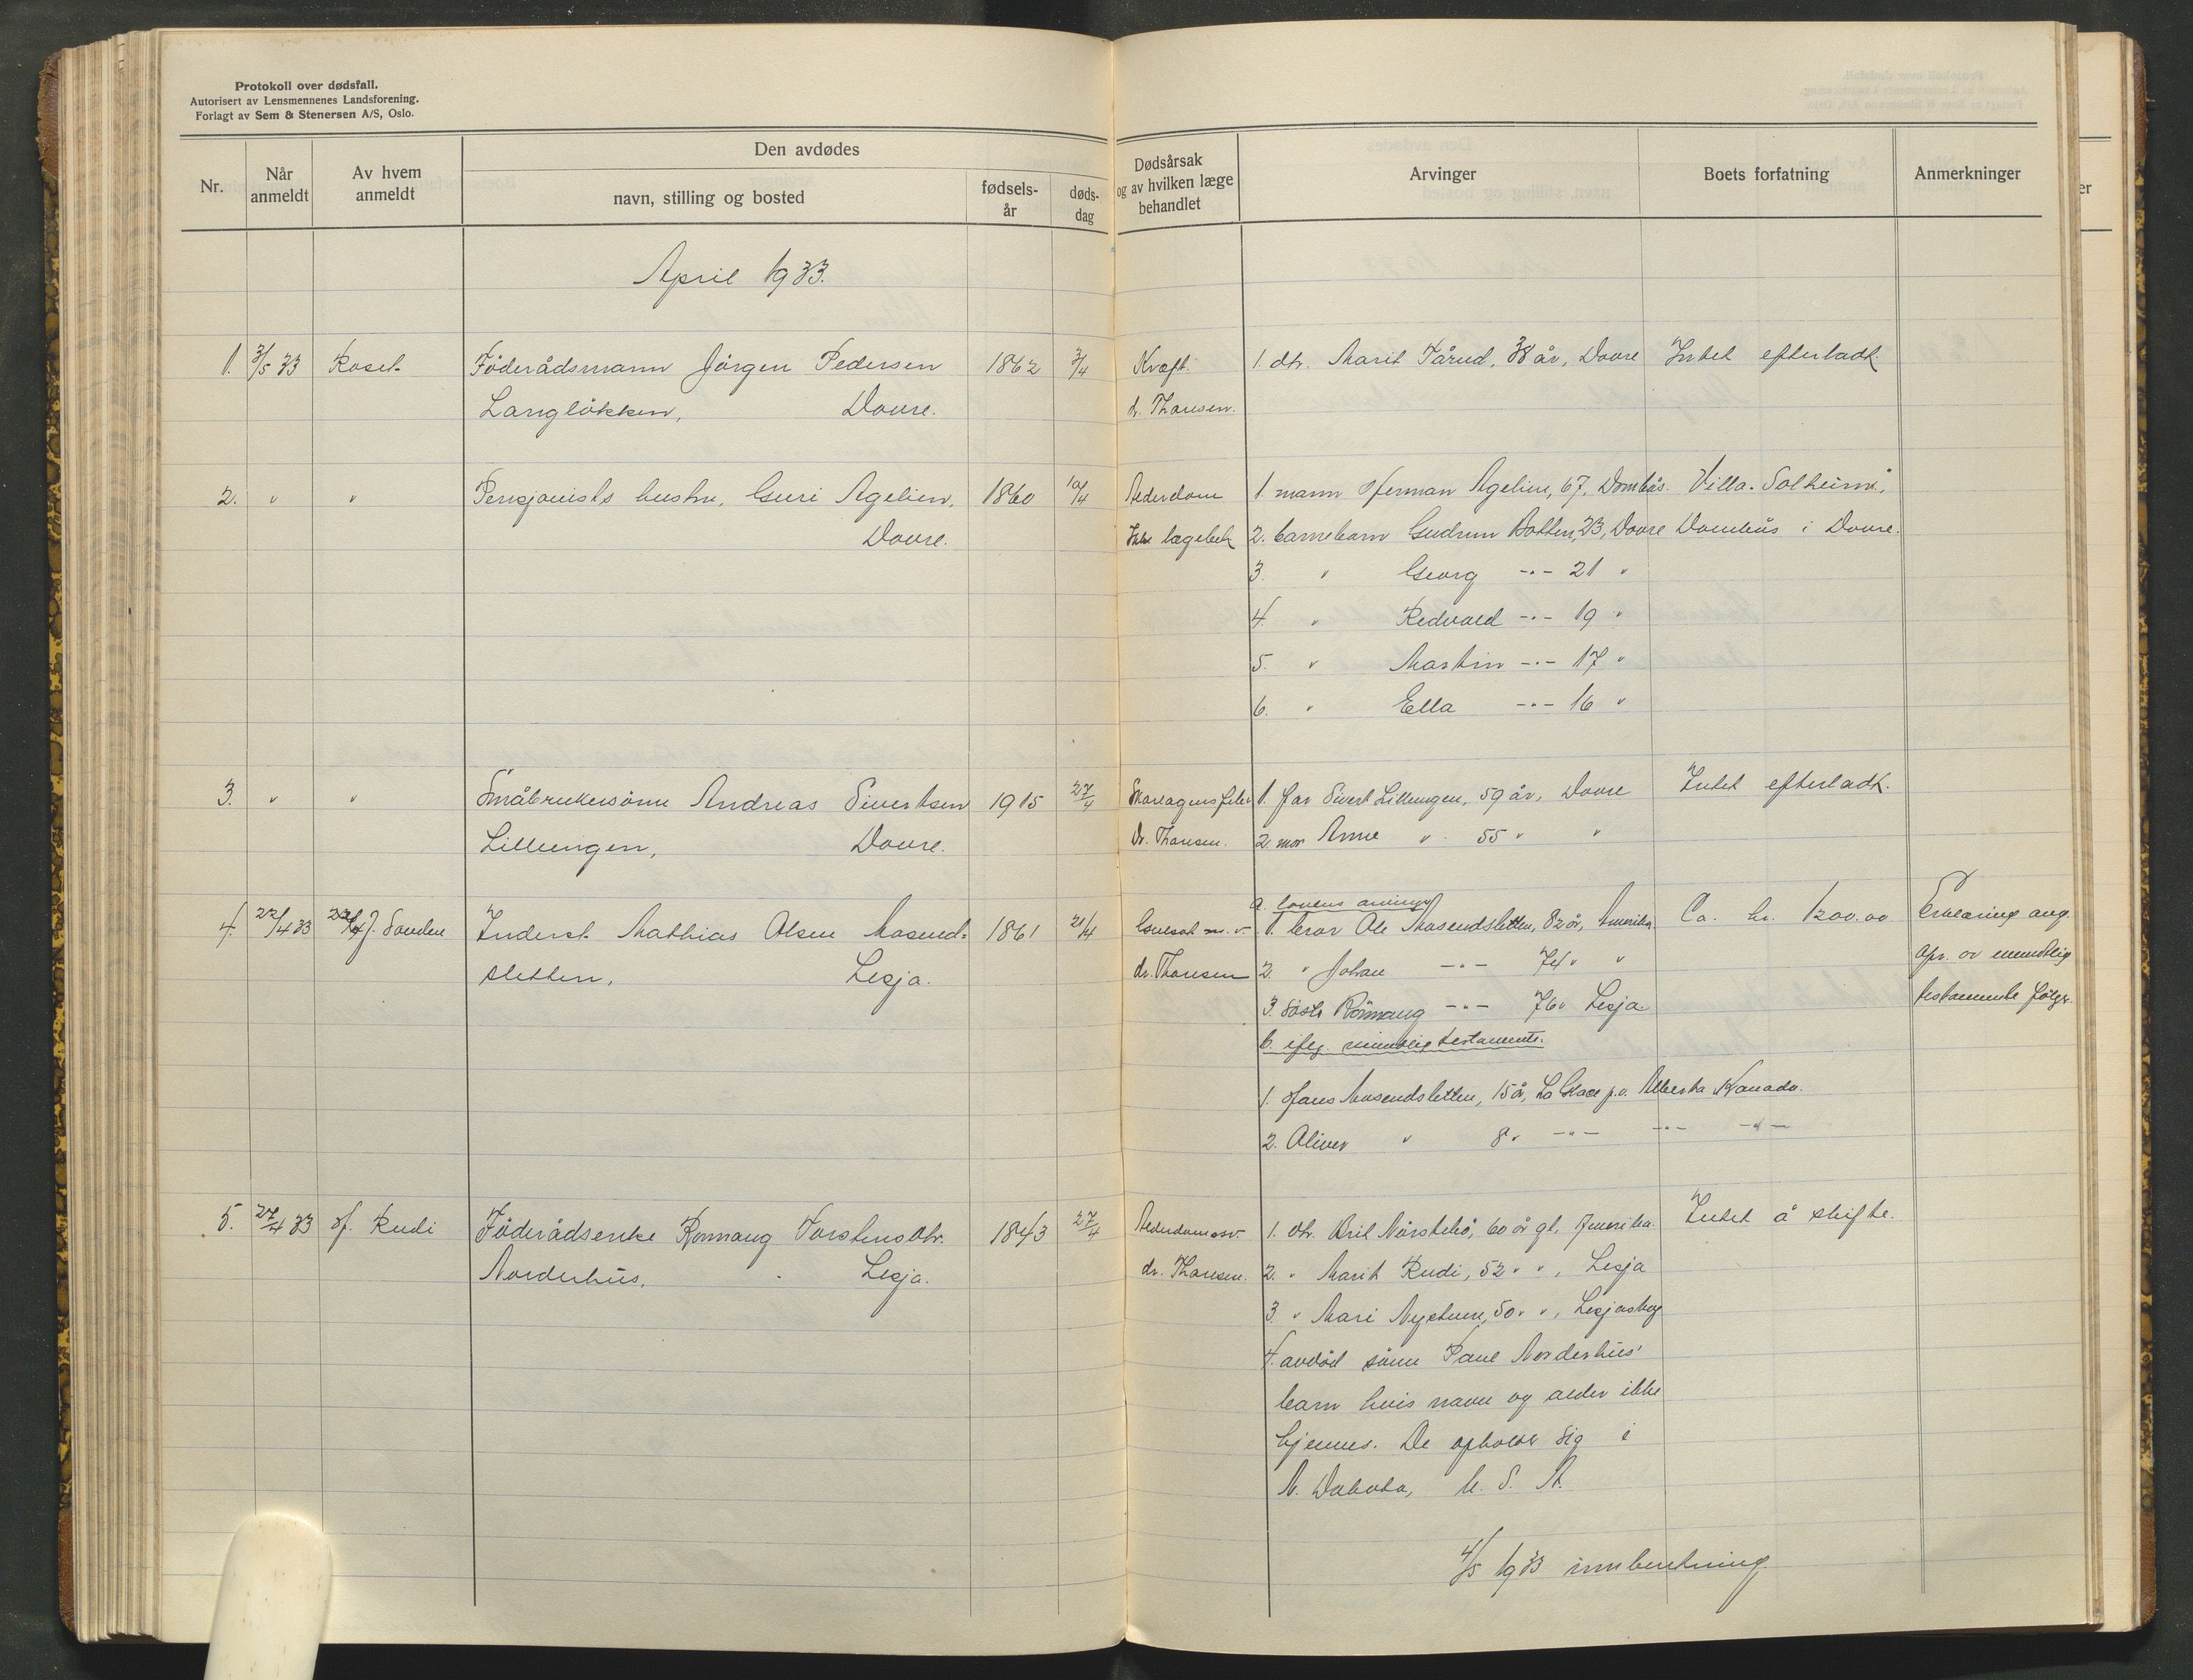 Protokoll over dødsfall.
Autorisert av Lensmennenes Landsforening.
Forlagt av Sem & Stenersen A/S, Oslo.
Nr.
Når anmeldt
Av hvem anmeldt
Den avdødes
navn, stilling og bosted
fødsels-år
døds-dag
Dødsårsak og av hvilken læge behandlet
Arvinger
Boets forfatning
Anmerkninger
April 1933.
1. 3/5 33 Roset Föderådsmann Jörgen Pedersen 1862 3/4 Kræft. 1. dtr. Marit Tårud, 38 år, Dovre Intet efterladt.
Langlökken, Dovre. d. Thoresen.
2. " " Pensjonists hustru, Guri Agelien, 1860 10/4 Alderdom 1. mann Herman Agelien, 67, Dombås. Villa "Solheim",
Dovre. Ikke lægebeh. 2. barnebarn Gudrun Botten, 23, Dovre Dombås i Dovre.
3. " Georg -"- 21 "
4. " Redvald -"- 19 "
5. " Martin -"- 17 "
6. " Ella -"- 16 "
3. " " Småbrukersönn Andreas Sivertsen 1915 27/4 Skarlagensfeber 1. far Sivert Lillengen, 59 år, Dovre Intet efterladt.
Lillengen, Dovre. Dr. Thoresen. 2. mor Anne " 55 " "
a. lovens arvinger
4. 22/4 33 J. Sanden Inderst Mathias Olsen Mosend= 1861 21/4 Gulsot m. v. 1. bror Ole Mosendsletten, 82 år, Amerika. Ca. kr. 1200.00 Erklæring ang.
sletten, Lesja. dr. Thoresen 2. " Johan -"- 74 " " opr. av muntlig
3. söster Rönnaug -"- 76 " Lesja testamente fölger.
b. iflg. muntlig testamente.
1. Hans Mosendsletten, 15 år, La Glace p.o. Alberta Kanada.
2. Oliver " 8 " -"- -"- -"-
5. 27/4 33 H. Rudi Föderådsenke Rönnaug Torstensdtr. 1843 27/4 Alderdomssv. 1. dtr. Brit Nörstebö, 60 år gl. Amerika. Intet å skifte.
Norderhus, Lesja. dr. Thoresen. 2. " Marit Rudi, 52 " ", Lesja
3. " Mari Nystuen, 50 " ", Lesjaskog
4. avdöd sönn Paul Norderhus'
barn hvis navn og alder ikke
kjennes. De opholder sig i
N. Dakota, U. S. A.
4/5 1933 innberetning.